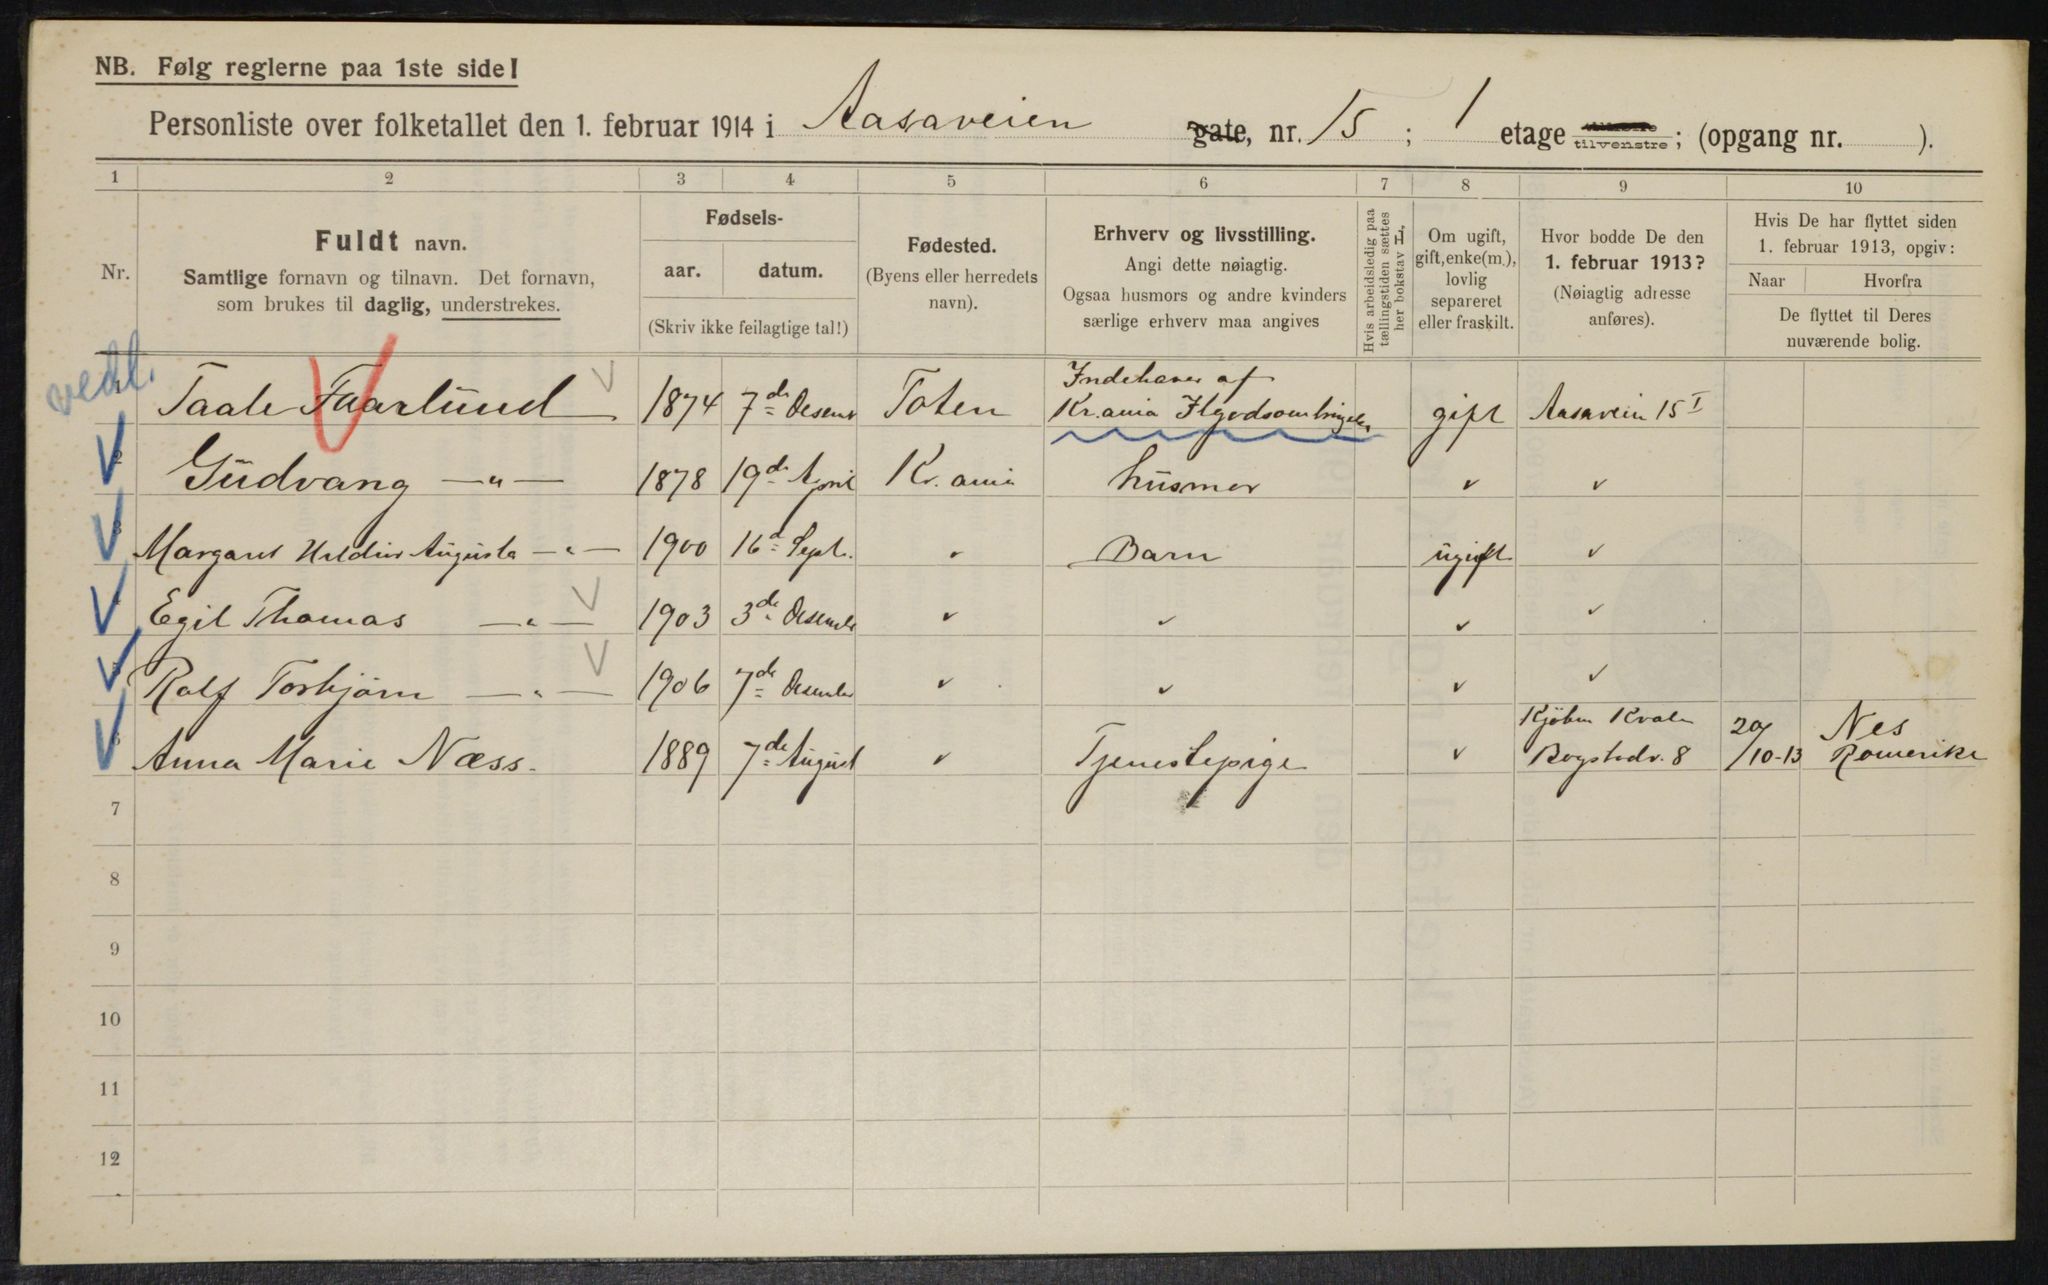 NB. Følg reglerne paa 1ste side!
Personliste over folketallet den 1. februar 1914 i Aasaveien gate, nr. 15; 1 etage tilvenstre; (opgang nr. ).
1 2 3 4 5 6 7 8 9 10
Nr.
Fuldt navn.
Samtlige fornavn og tilnavn. Det fornavn,
som brukes til daglig, understrekes.
Fødsels-
aar. datum.
(Skriv ikke feilagtige tal!)
Fødested.
(Byens eller herredets
navn).
Erhverv og livsstilling.
Angi dette nøiagtig.
Ogsaa husmors og andre kvinders
særlige erhverv maa angives
Hvis arbeidsledig paa
tællingstiden sættes
her bokstav H.
Om ugift,
gift, enke(m.),
lovlig
separeret
eller fraskilt.
Hvor bodde De den
1. februar 1913?
(Nøiagtig adresse
anføres).
Hvis De har flyttet siden
1. februar 1913, opgiv:
Naar Hvorfra
De flyttet til Deres
nuværende bolig.
vedl.
Taale Faarlund 1874 7de Desem Toten Indehaver af
Kr.ania Ilgodsombringelse gift Aasavein 15 I
2 Gudvang —"— 1878 19de April Kr.ania husmor ✓ ✓
3 Margaret Augusta —"— 1900 16d Sept. ✓ Barn ugift ✓
4 Egil Thomas —"— 1903 3de Desember ✓ ✓ ✓ ✓
5 Rolf Torbjørn —"— 1906 7de Desember ✓ ✓ ✓ ✓
Kjøben 20/ Nes
6 Anna Marie Næss. 1889 7de August ✓ Tjenestepige ✓ Bogstadv. 8 10-13 Romerike
7
8
9
10
11
12